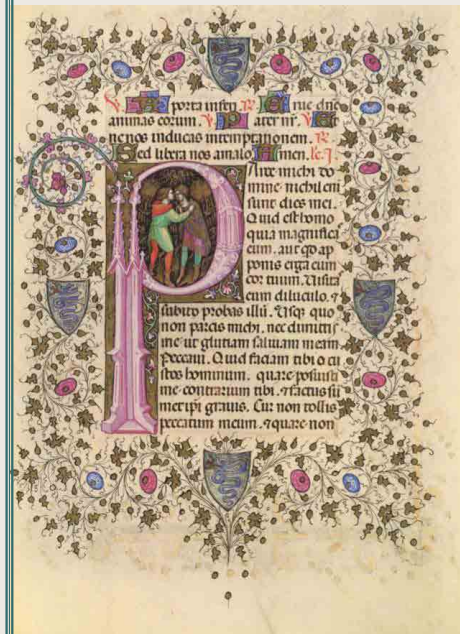 V. A porta inferi R. Erue dñe
animas eorum. V. Pater nr̄. V. Et
ne nos inducas intemptationem. R.
Sed libera nos amalo Amen. lc. j.
Parce michi do
mine nichil eni
sunt dies mei.
Quid est homo
quia magnificas
eum. aut qd ap
ponis erga eum
cor tuum. Visitas
eum diluculo. ⁊
subito probas illū. Usq; quo
non parcis michi. nec dimittis
me ut glutiam saliuam meam
Peccaui. Quid faciam tibi o cu
stos hominum. quare posuisti
me contrarium tibi. ⁊ factus sū
met ipi grauis. Cur non tollis
peccatum meum. ⁊ quare non